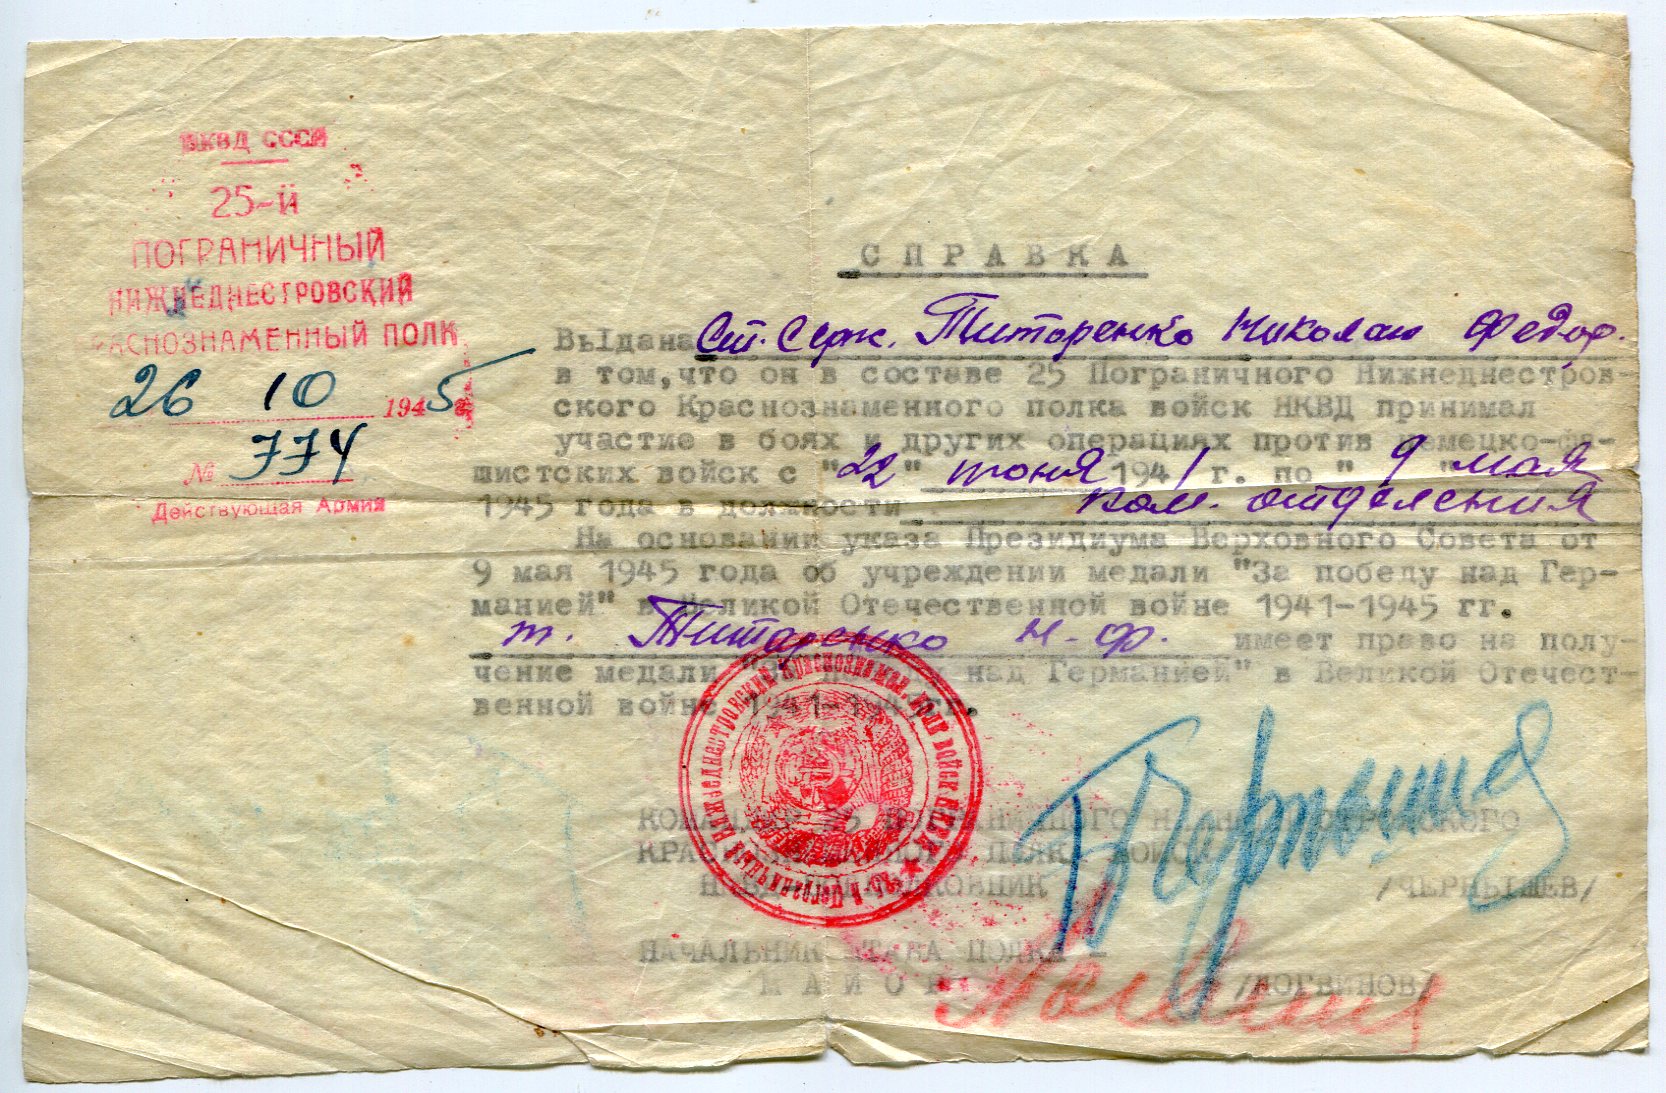 НКВД СССР
25-й
ПОГРАНИЧНЫЙ
НИЖНЕДНЕСТРОВСКИЙ
РАСНОЗНАМЕННЫЙ ПОЛК
26 10 1945
№ 774
Действующая Армия
СПРАВКА
Выдана Ст. Серж. Титоренко Николаи Федор.
в том, что он в составе 25 Пограничного Нижнеднестров-
ского Краснознаменного полка войск НКВД принимал
участие в боях и других операциях против немецко-фа-
шистских войск с "22" июня 1941 г. по "9" мая
1945 года в должности ком. отделения
На основании указа Президиума Верховного Совета от
9 мая 1945 года об учреждении медали "За победу над Гер-
манией" в Великой Отечественной войне 1941-1945 гг.
т. Титоренко Н. Ф. имеет право на полу-
чение медали "За победу над Германией" в Великой Отечест-
венной войне 1941-1945 гг.
25-й Пограничный Нижнеднестровский Краснознамен. полк войск НКВД
КОМАНДИР 25 ПОГРАНИЧНОГО НИЖНЕДНЕСТРОВСКОГО
КРАСНОЗНАМЕННОГО ПОЛКА ВОЙСК
НКВД ПОДПОЛКОВНИК /ЧЕРНЫШЕВ/
НАЧАЛЬНИК ШТАБА ПОЛКА -
МАЙОР /ЛОГВИНОВ/